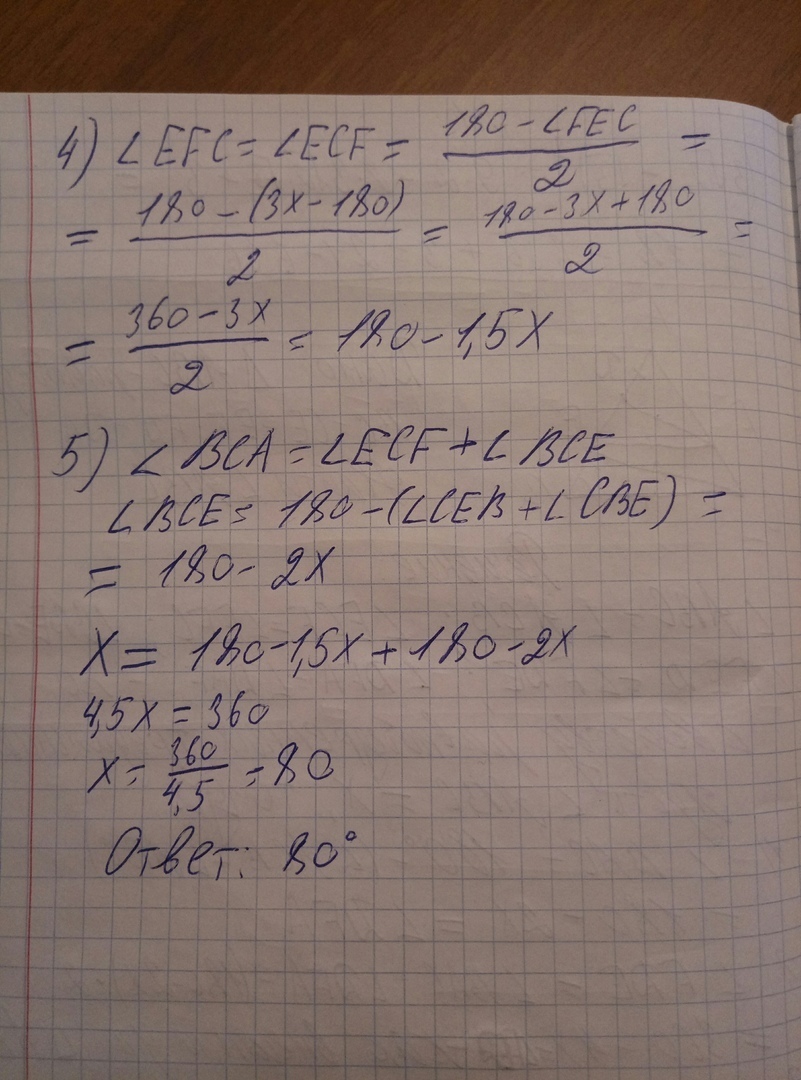 4) ∠EFC = ∠ECF = (180 - ∠FEC)/2 =
= (180 - (3x - 180))/2 = (180 - 3x + 180)/2 =
= (360 - 3x)/2 = 180 - 1,5x
5) ∠BCA = ∠ECF + ∠BCE
∠BCE = 180 - (∠CEB + ∠CBE) =
= 180 - 2x
x = 180 - 1,5x + 180 - 2x
4,5x = 360
x = 360/4,5 = 80
Ответ: 80°